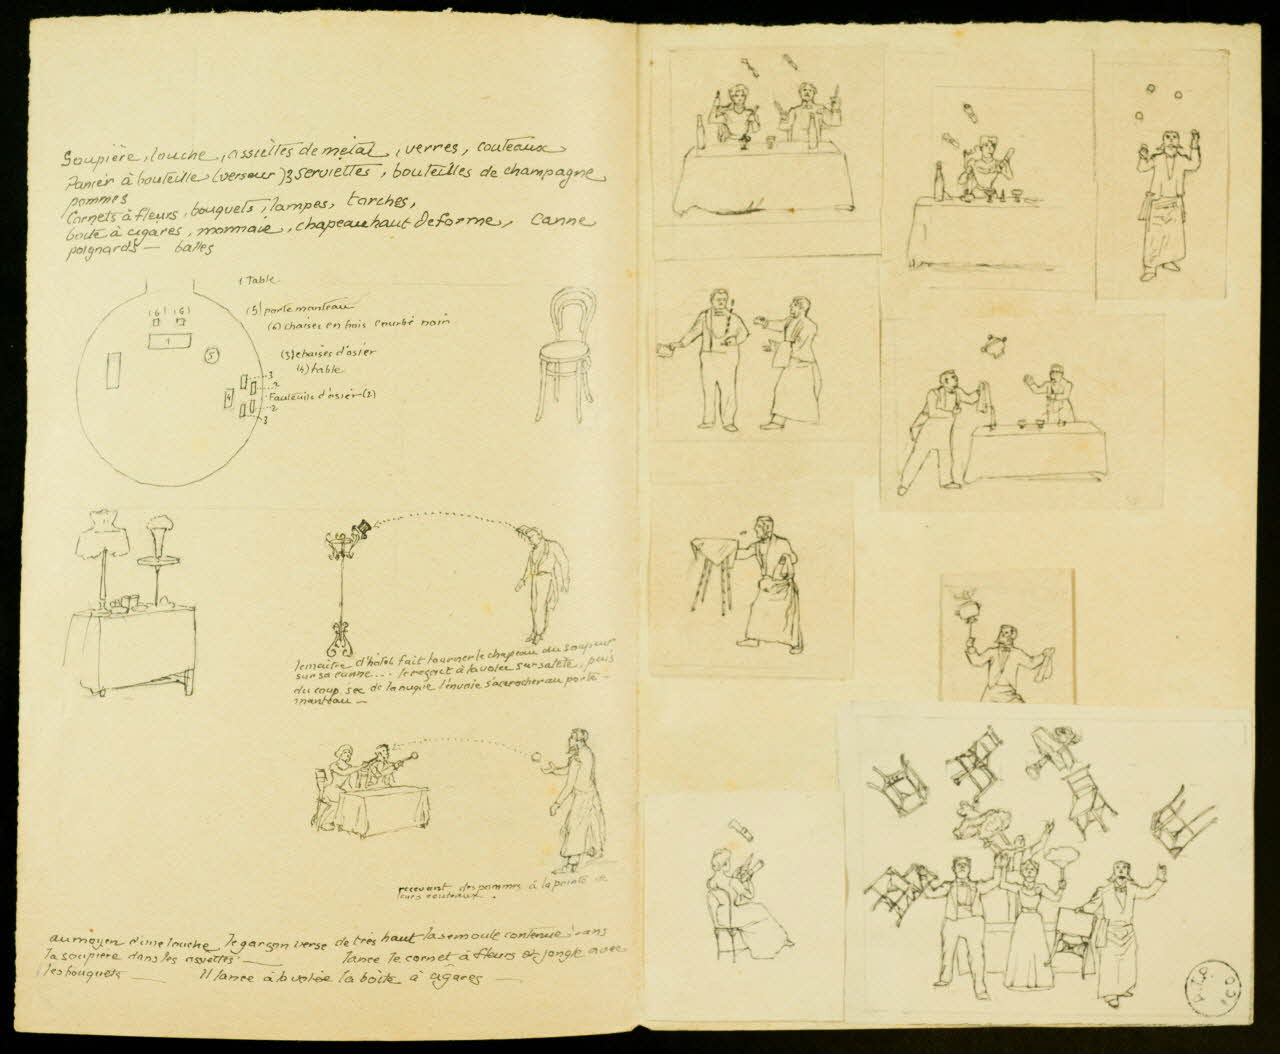 Soupière, louche, assiettes de métal, verres, couteaux
Panier à bouteille (verseur) 3 serviettes, bouteilles de champagne
pommes
Cornets à fleurs, bouquets, lampes, torches,
boîte à cigares, monnaie, chapeau haut de forme, canne
poignards — balles
1 Table
(6) (6)
(5) porte manteau
1
(6) chaises en bois courbé noir
5
(3) chaises d'osier
(4) table
3
2
4
Fauteuils d'osier (2)
2
3
le maître d'hôtel fait tourner le chapeau du soupeur
sur sa canne... le reçoit à la volée sur sa tête, puis
du coup sec de la nuque l'envoie s'accrocher au porte-
manteau —
recevant des pommes à la pointe de
leurs couteaux.
au moyen d'une louche le garçon verse de très haut la semoule contenue dans
la soupière dans les assiettes — lance le cornet à fleurs et jongle avec
les bouquets — Il lance à la volée la boîte à cigares —